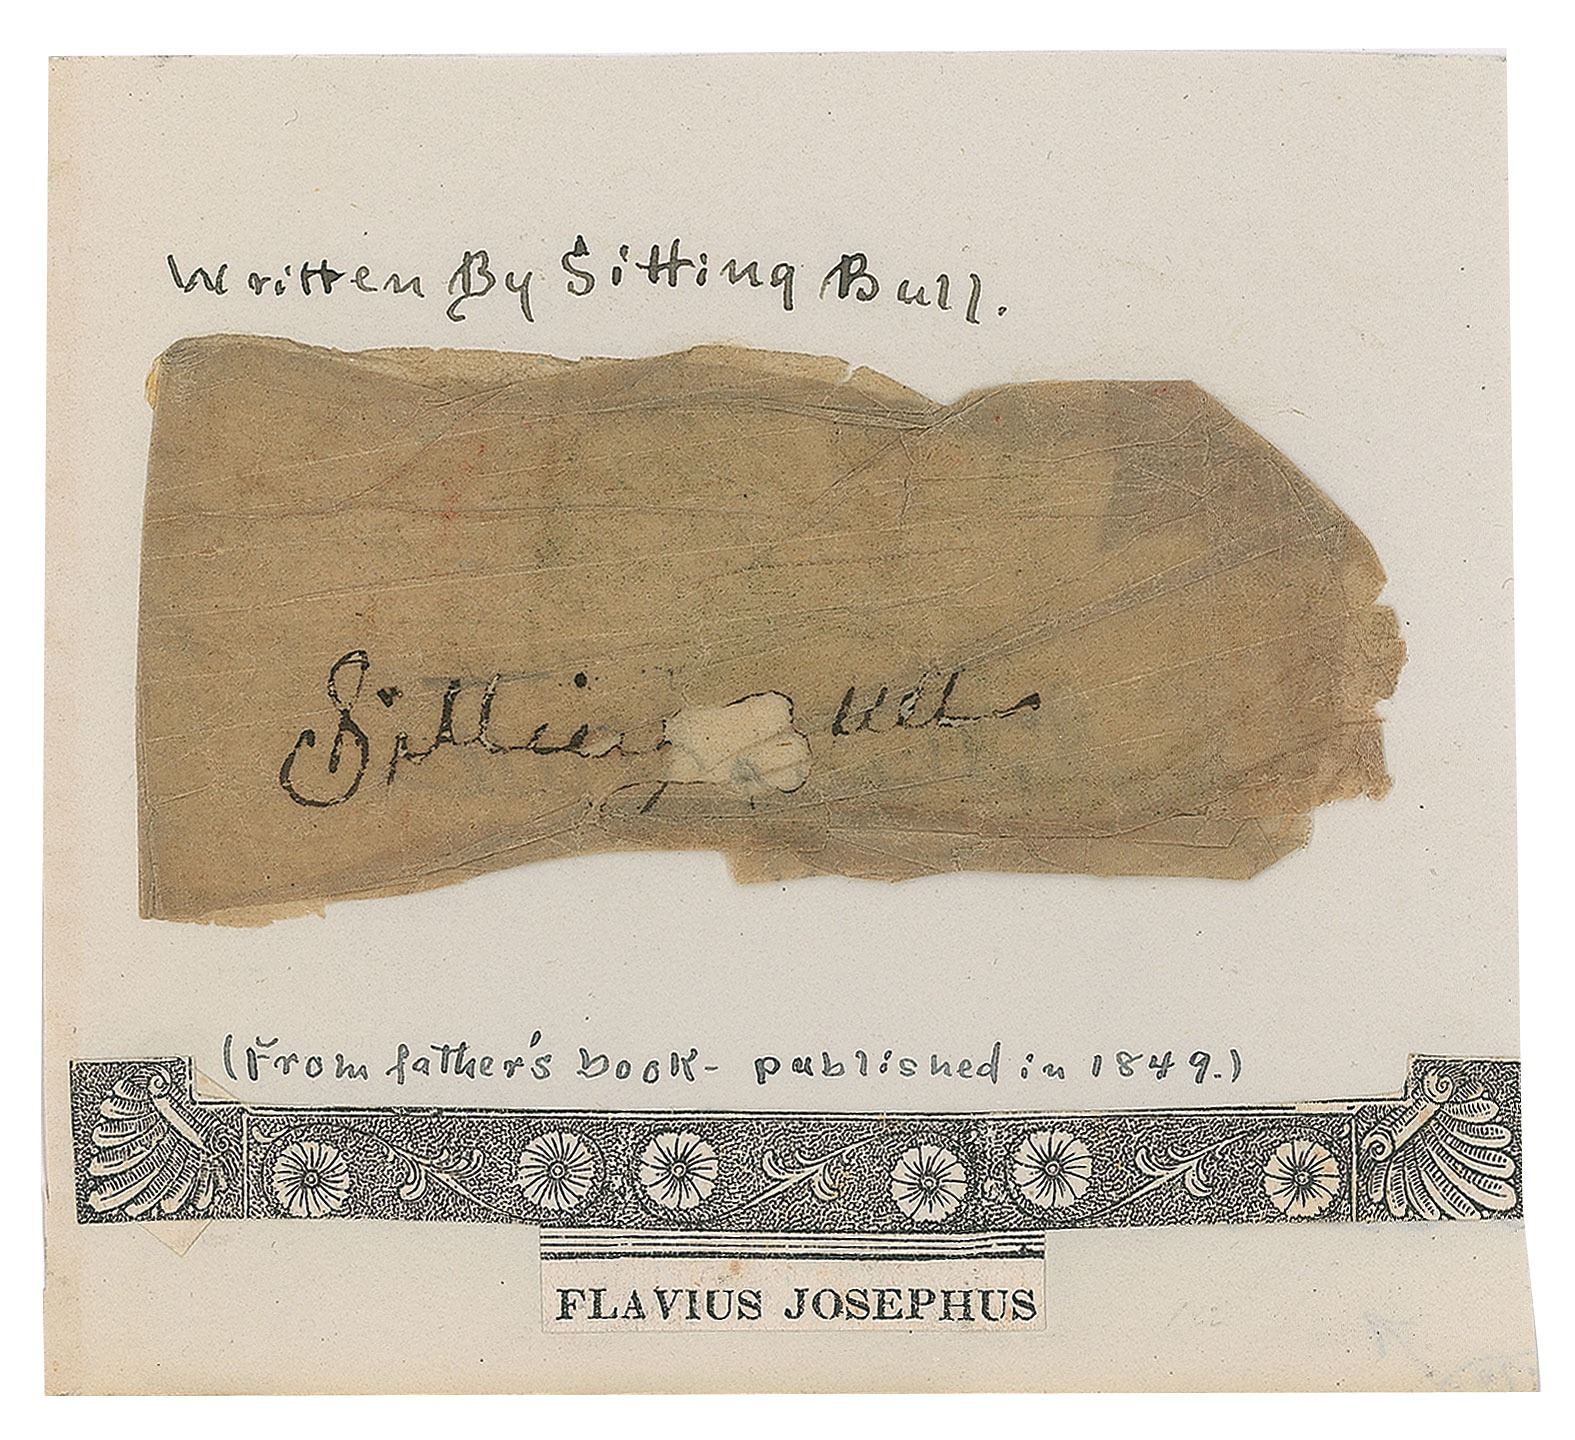 Written By Sitting Bull.
Sitting ull
(From father's book- published in 1849.)
FLAVIUS JOSEPHUS